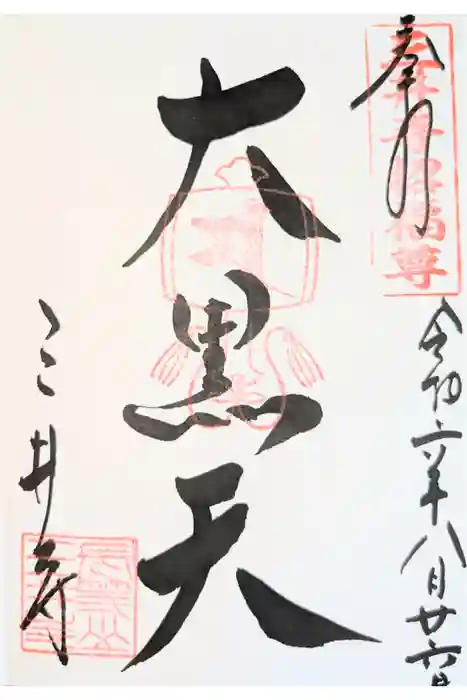 奉拝
令和六年八月廿六日
大黒天
三井寺